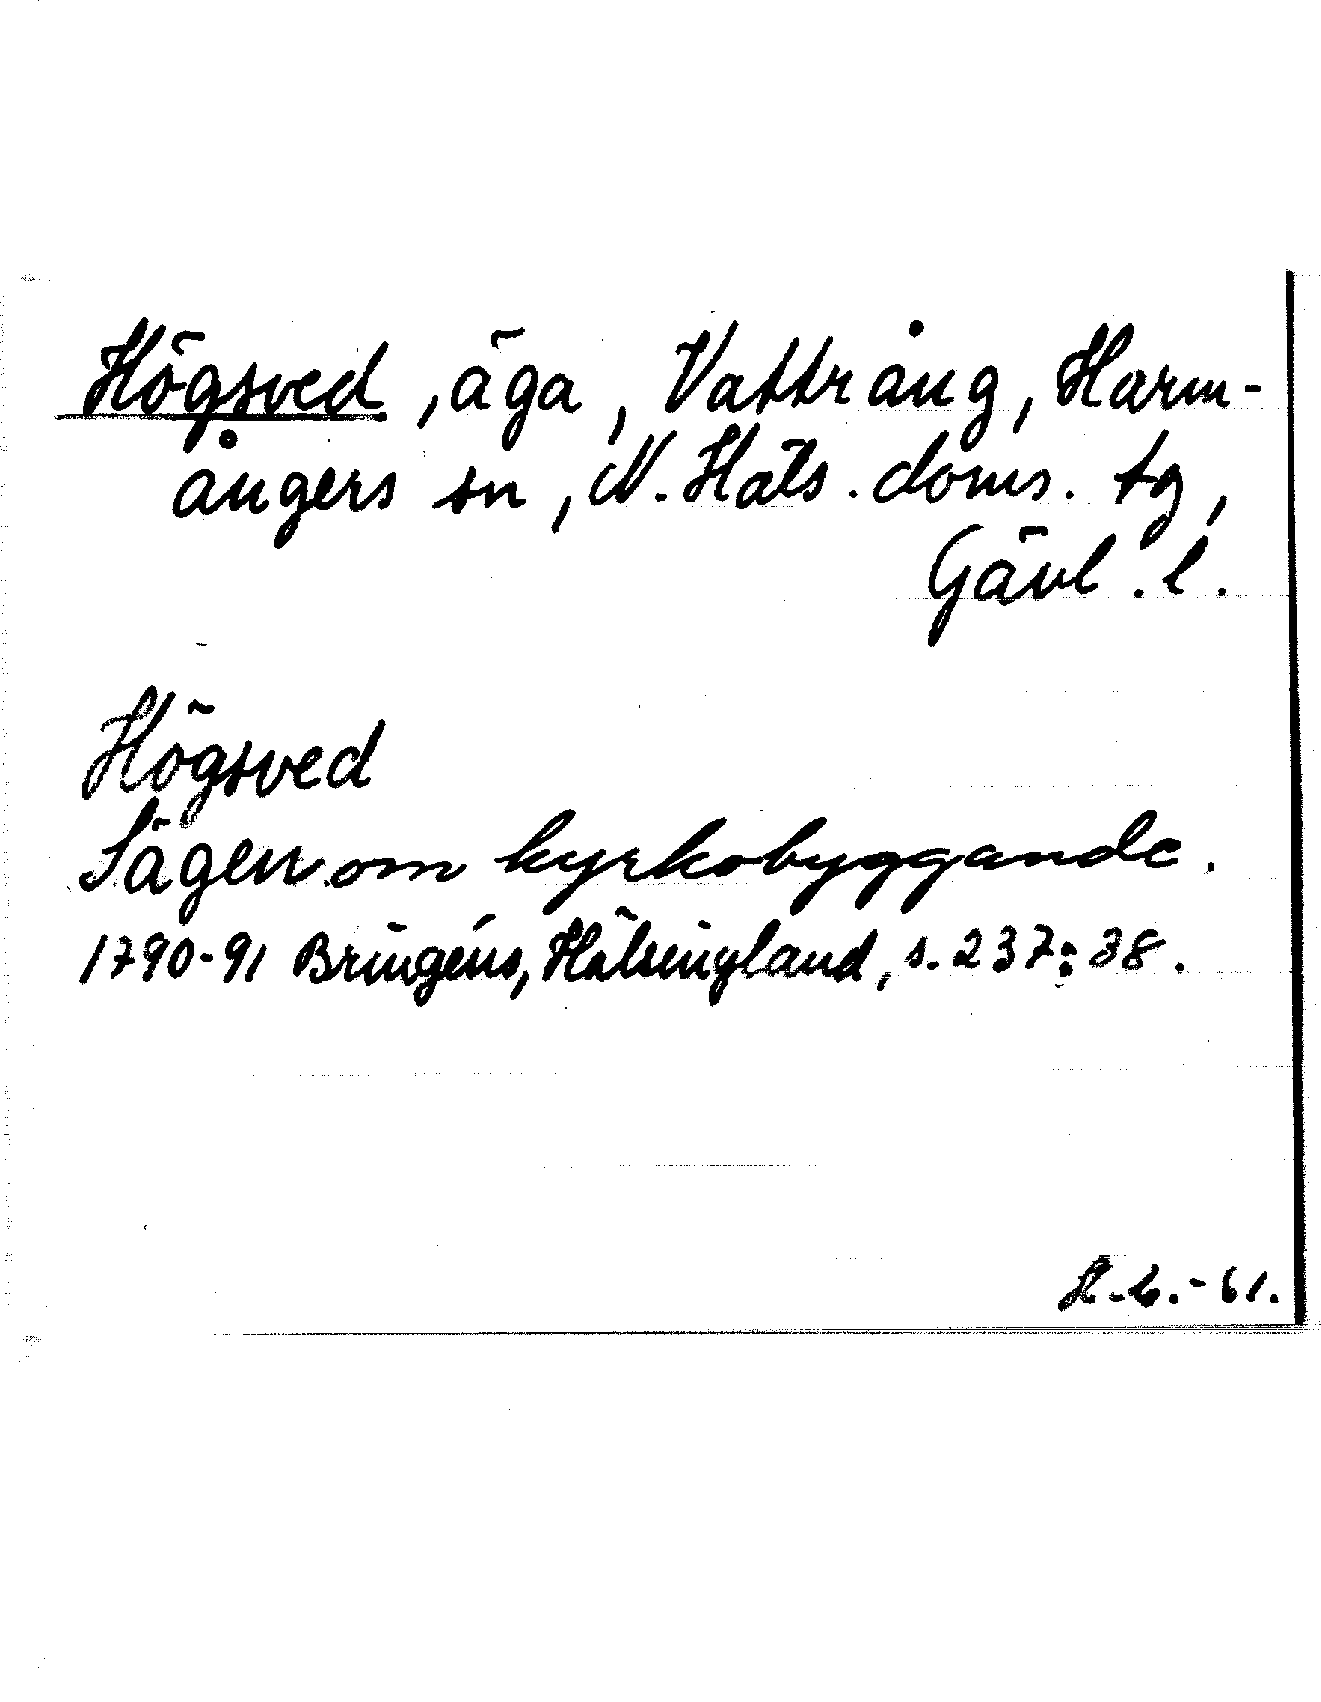 Högsved, äga, Vattrång, Harm-
ångers sn, N. Häls. doms. tg,
Gävl. l.
Högsved
Sägen om kyrkobyggande.
1790-91 Bringéus, Hälsingland, s. 237: 38.
-61.